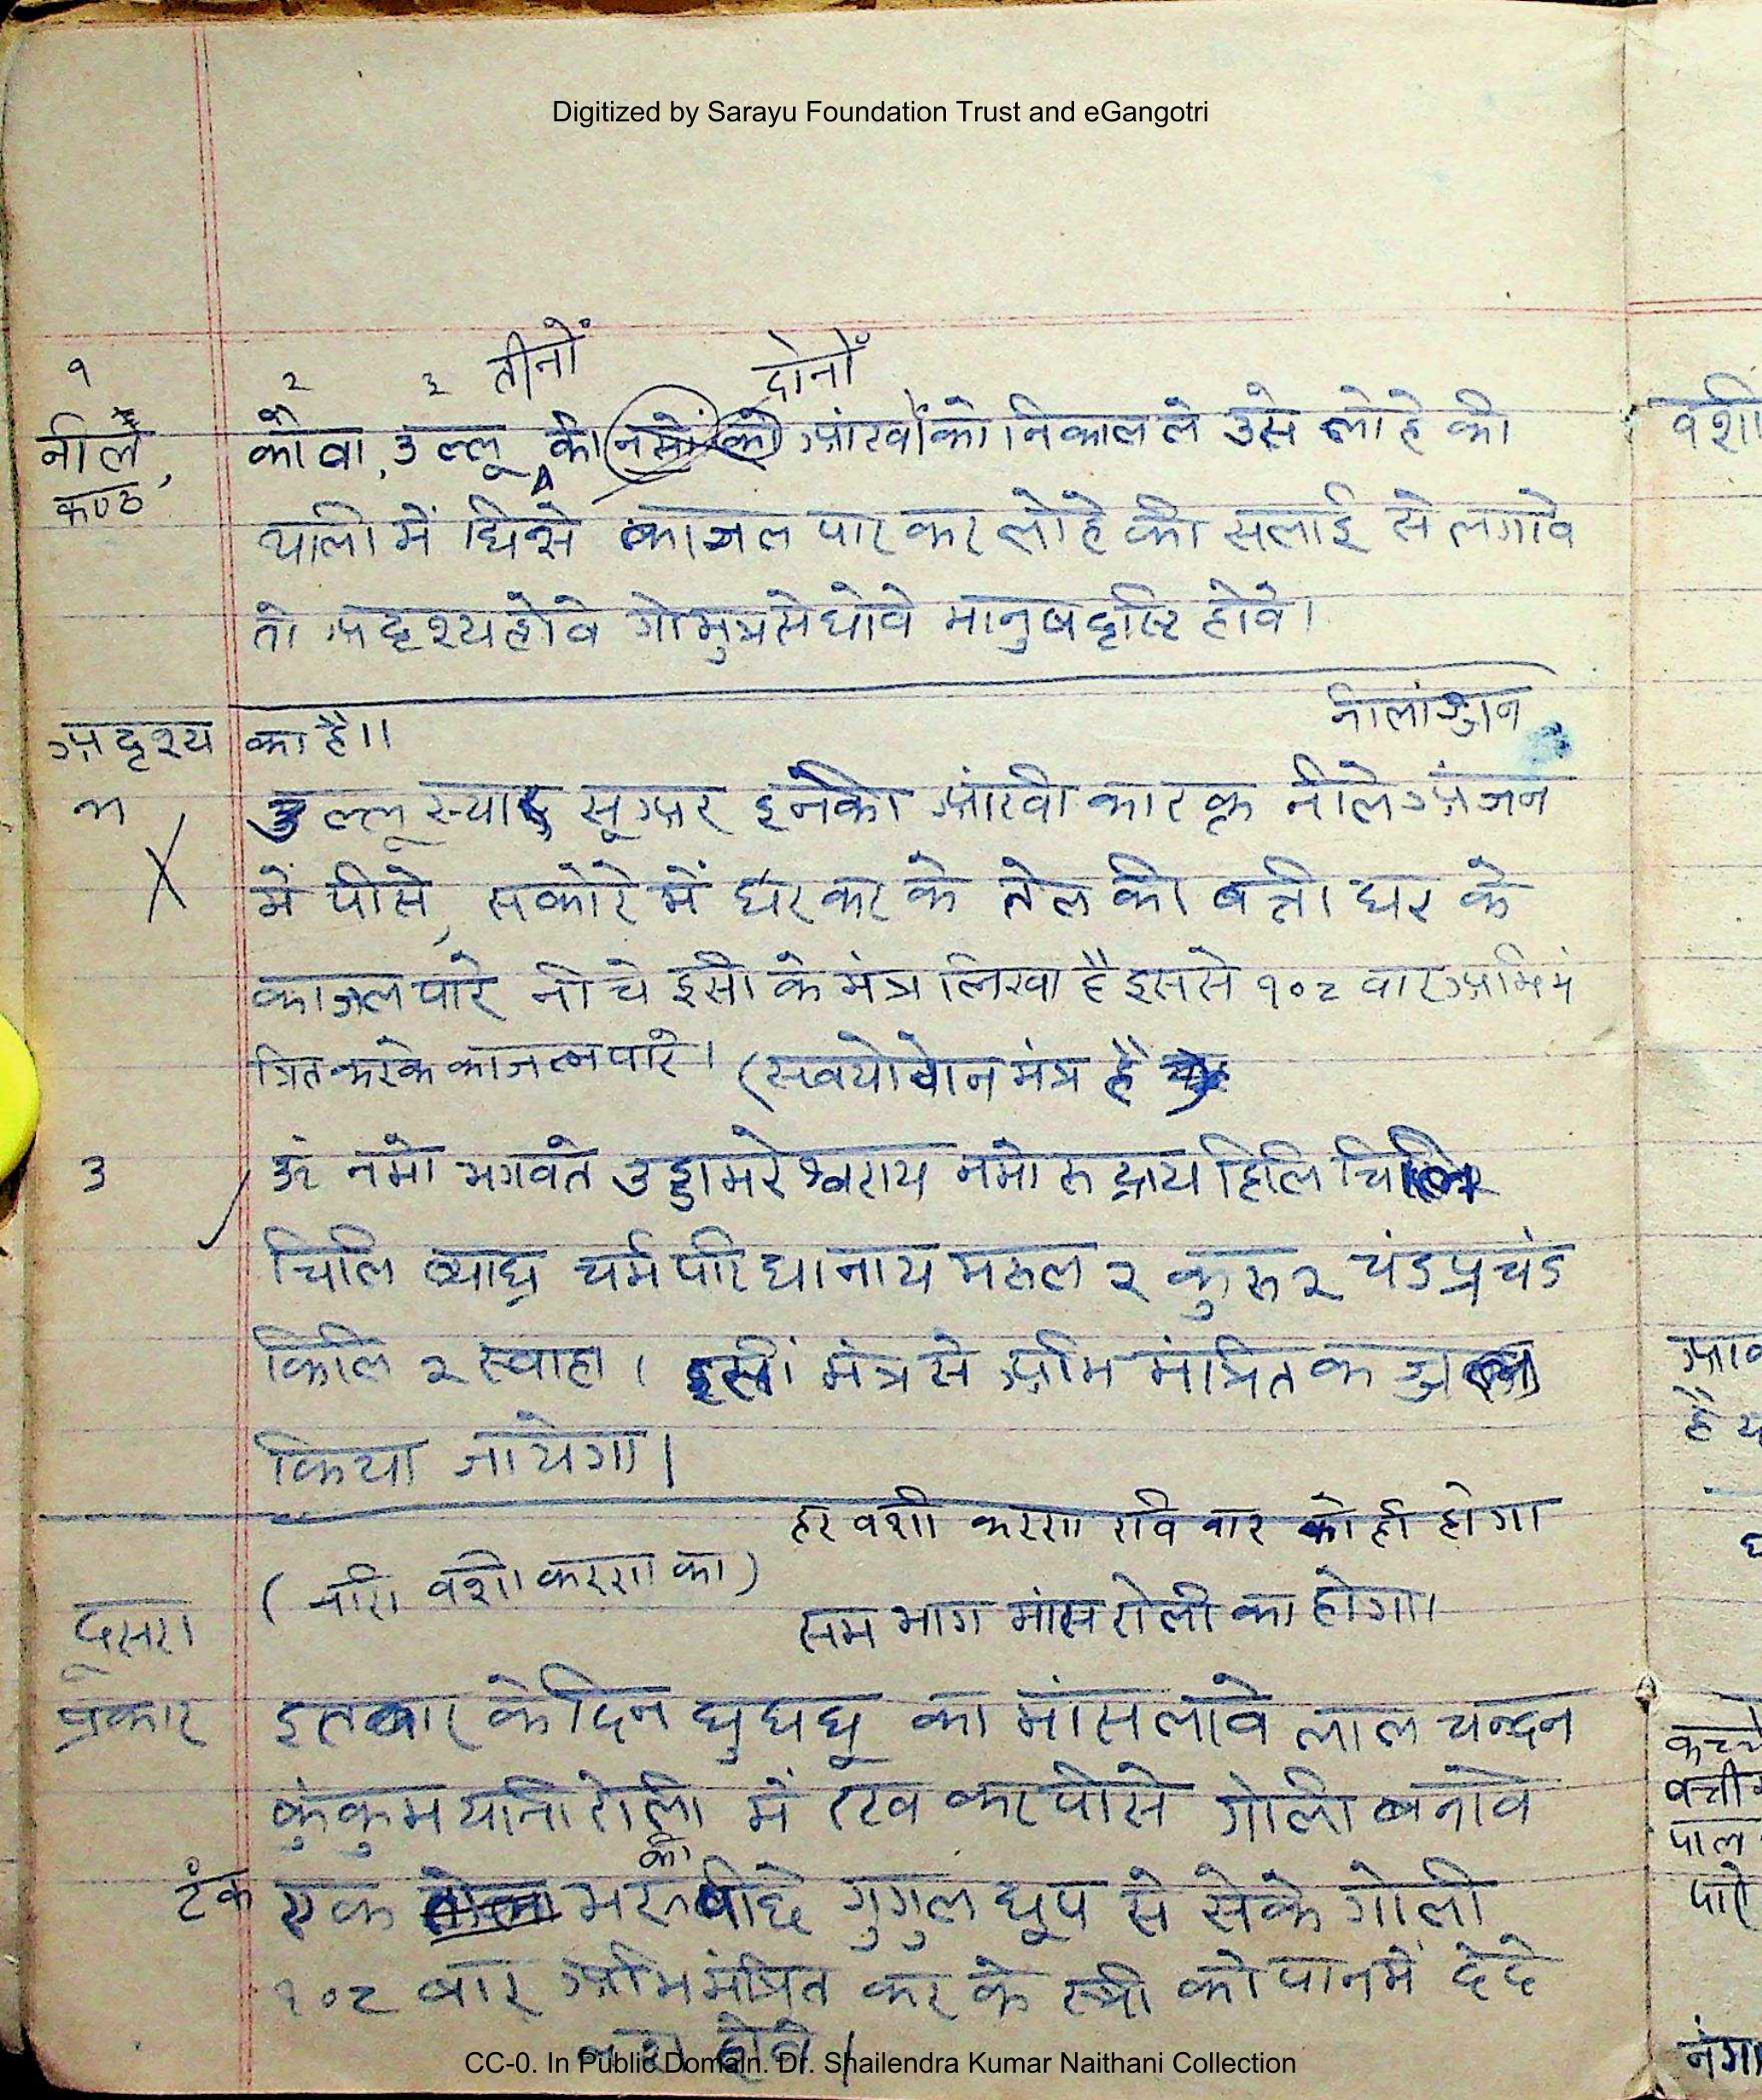 Digitized by Sarayu Foundation Trust and eGangotri
१ २ ३ तीनों दोनों
नील कौवा, उल्लू की नसों को आंखों को निकाल ले उसे लोहे की
कण्ठ,
थाली में घिसे काजल पार कर लोहे की सलाई से लगावे
तो अदृश्य होवे गोमुत्र से धोवे मानुष दृष्टि होवे।
नीलांञ्जन
अदृश्य का है।।
उल्लू स्यार सूअर इनकी आंखी का रक्त नीले अंजन
में पीसे, सकोरे में धर कर के तेल की बत्ती धर के
काजल पारे नीचे इसी के मंत्र लिखा है इससे १०८ वार अभिमं
त्रित करके काजल पारे। (सवयोवोन मंत्र है
३ ॐ नमो भगवते उड्डामरेश्वराय नमो रुद्राय हिलि चिलि
चिलि व्याघ्र चर्म परिधानाय मरुल २ कुरु २ चंड प्रचंड
किलि २ स्वाहा। इसी मंत्र से अभि मंत्रित क
किया जायेगा।
हर वशीकरण रविवार को ही होगा
(नारी वशीकरण का)
दूसरा सम भाग मांस रोली का होगा।
प्रकार इतबार के दिन घुघघू का मांस लावे लाल चन्दन
कुंकुम यानी रोली में रख कर पीसे गोली बनावे
की
टंक एक तोला भर पीछे गुगुल धूप से सेके गोली
१०८ बार अभिमंत्रित कर के स्त्री को पान में दे दे
होवे।
CC-0. In Public Domain. Dr. Shailendra Kumar Naithani Collection
वशी
है य
कच्चे
बत्ती
पाल
पारे
नंगा